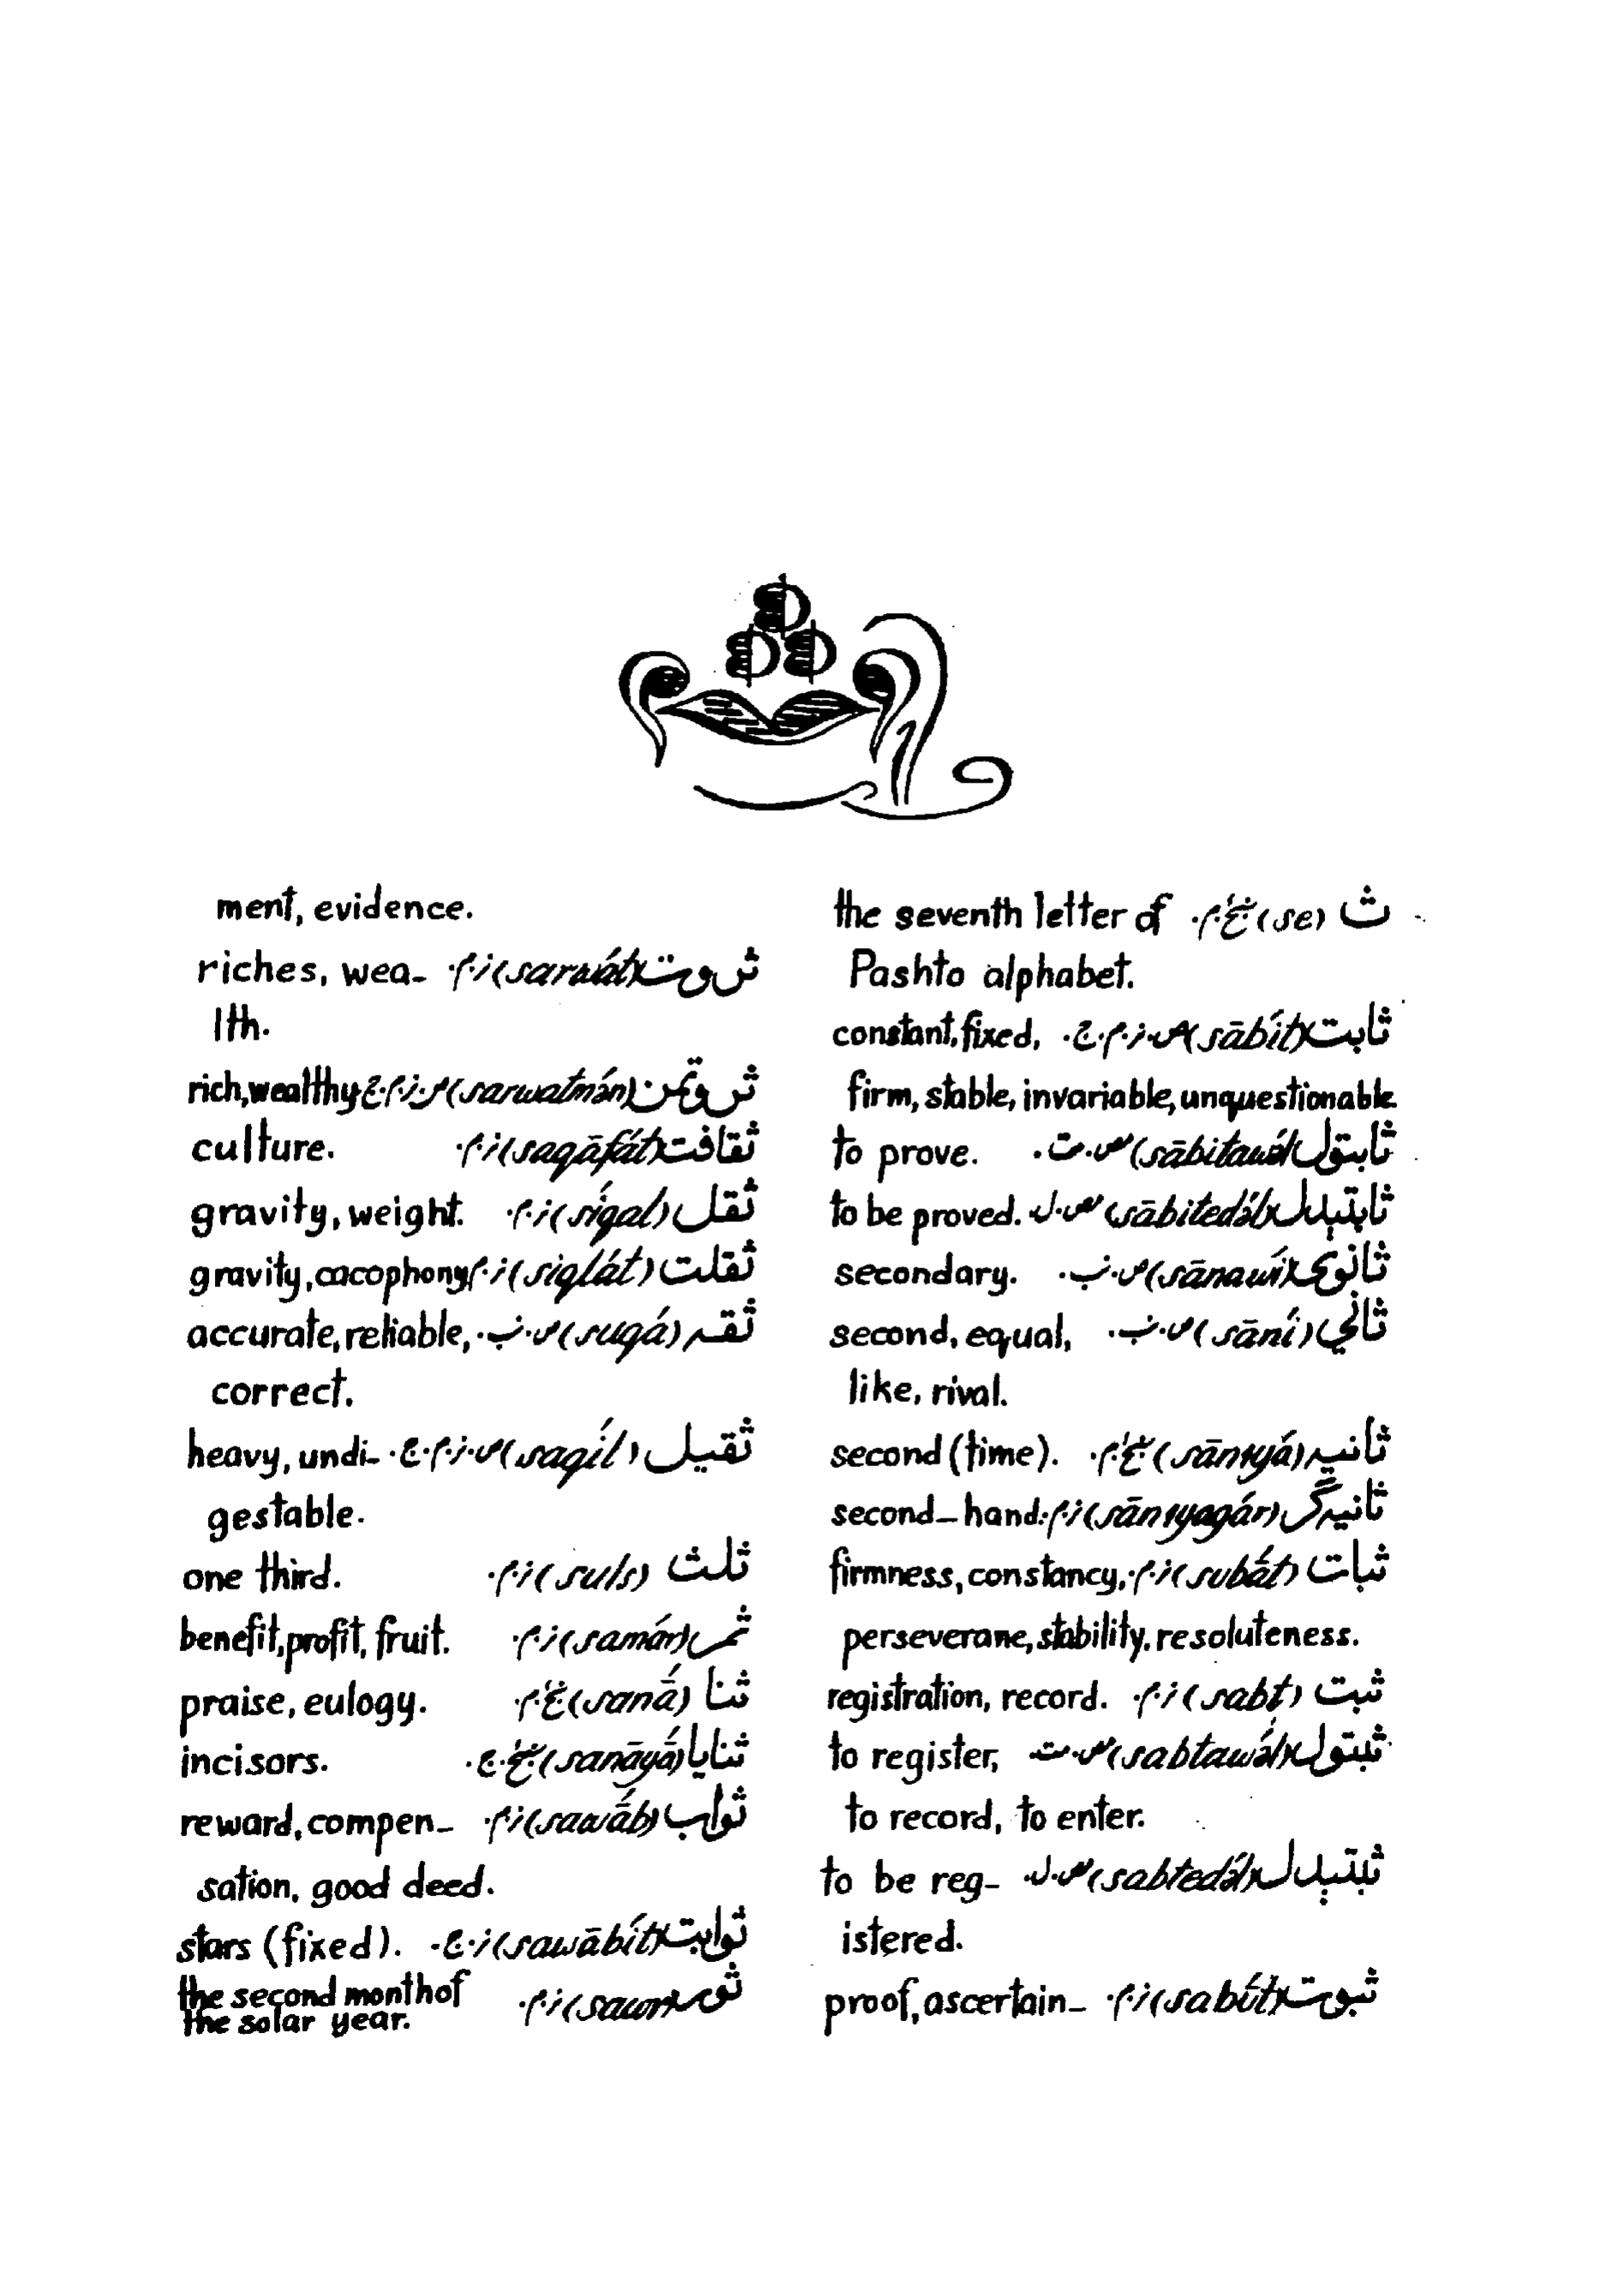 ث (se) the seventh letter of
Pashto alphabet.
ثابت (sābít) ص.ن.م.ج. constant, fixed,
firm, stable, invariable, unquestionable.
ثابتول (sābitawə́l) مص.ت. to prove.
ثابتېدل (sābitedə́l) مص.ل. to be proved.
ثانوي (sānawí) ص.ب. secondary.
ثاني (sāní) ص.ب. second, equal,
like, rival.
ثانيه (sānɪyá) second (time).
ثانيه‌گر (sānɪyagár) ن.م. second-hand.
ثبات (subā́t) ن.م. firmness, constancy,
perseverane, stability, resoluteness.
ثبت (sabt) ن.م. registration, record.
ثبتول (sabtawə́l) مص.ت. to register,
to record, to enter.
ثبتېدل (sabtedə́l) مص.ل. to be reg-
istered.
ثبوت (sabút) ن.م. proof, ascertain-
ment, evidence.
ثروت (sarwát) ن.م. riches, wea-
lth.
ثروتمن (sarwatmán) ص.ن.م.ج. rich, wealthy
ثقافت (saqāfát) ن.م. culture.
ثقل (síqal) ن.م. gravity, weight.
ثقلت (siqlát) ن.م. gravity, cacophony
ثقه (suqá) ص.ب. accurate, reliable,
correct.
ثقيل (saqíl) ص.ن.م.ج. heavy, undi-
gestable.
ثلث (suls) ن.م. one third.
ثمر (samár) ن.م. benefit, profit, fruit.
ثنا (sanā́) praise, eulogy.
ثنايا (sanāyā́) incisors.
ثواب (sawā́b) ن.م. reward, compen-
sation, good deed.
ثوابت (sawābít) ن.ج. stars (fixed).
ثور (sawr) ن.م. the second month of
the solar year.